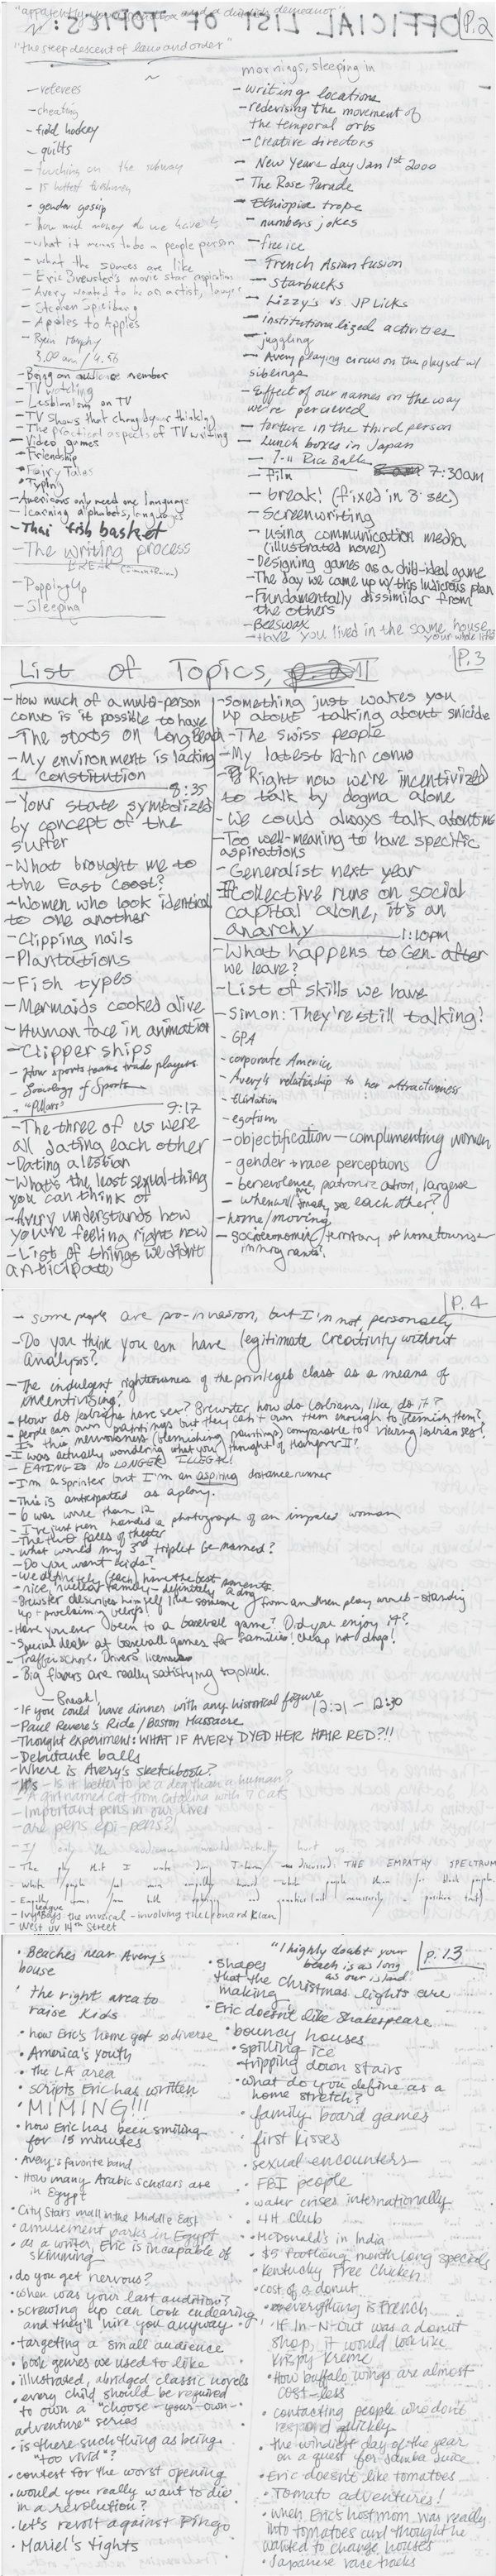 OFFICIAL LIST OF TOPICS:
P.2
"the steep descent of law and order"
- referees
- cheating
- field hockey
- quilts
- touching on the subway
- 15 hottest
- gender gossip
- how much money do we have
- what it means to be a people person
- what the spaces are like
- Eric Brewster's movie star aspirations
- Avery wanted to be an artist, lawyer
- Stephen Spielberg
- Apples to Apples
- Ryan Murphy
3:00 am / 4:56
- Being an audience member
- TV watching
- Lesbianism on TV
- TV shows that change your thinking
- The practical aspects of TV writing
- Video games
- Friendship
- Fairy Tales
- Typing
- Americans only need one language
- learning alphabets, languages
- Thai fish basket
- The writing process
BREAK
- Popping Up
- Sleeping
mornings, sleeping in
- writing locations
- redevising the movement of
the temporal orbs
- Creative directors
- New Years day Jan 1st 2000
- The Rose Parade
- Ethiopia trope
- numbers jokes
- free ice
- French Asian fusion
- Starbucks
- Lizzy's vs. JP Licks
- institutionalized activities
- juggling
- Avery playing circus on the playset w/
siblings
- Effect of our names on the way
we're perceived
- torture in the third person
- Lunch boxes in Japan
- 7-11 Rice Balls
7:30am
- film
- break! (fixed in 3 sec)
- Screenwriting
- using communication media
(illustrated novel)
- Designing games as a child-ideal game
- The day we came up w/ this ludicrous plan
- Fundamentally dissimilar from
the others
- Beeswax
- Have you lived in the same house
your whole life
List of Topics, II
P.3
- How much of a multi-person
convo is it possible to have
- The stars on Long Beach
- My environment is lacking
1 constitution
8:35
- Your state symbolized
by concept of the
surfer
- What brought me to
the East Coast?
- Women who look identical
to one another
- Clipping nails
- Plantations
- Fish types
- Mermaids cooked alive
- Human face in animation
- Clipper ships
- How sports teams trade players
- Sociology of Sports
- "Pillars"
9:17
- The three of us were
all dating each other
- Dating a lesbian
- What's the least sexual thing
you can think of
- Avery understands how
you're feeling right now
- List of things we didn't
anticipate
- Something just wakes you
up about talking about suicide
- The Swiss people
- My latest 12-hr convo
- Right now we're incentivized
to talk by dogma alone
- We could always talk about me
- Too well-meaning to have specific
aspirations
- Generalist next year
- Collective runs on social
capital alone, it's an
anarchy
1:10pm
- What happens to Gen. after
we leave?
- List of skills we have
- Simon: They're still talking?
- GPA
- corporate America
- Avery's relationship to her attractiveness
- flirtation
- egotism
- objectification - complimenting women
- gender + race perceptions
- benevolence, patronization, largesse
- when will we finally see each other?
- home/moving
- socioeconomic/territory of hometowns
immigrants!
P.4
- some people are pro-invasion, but I'm not personally
- Do you think you can have legitimate creativity without
analysis?
- The indulgent righteousness of the privileged class as a means of
incentivising?
- How do lesbians have sex? Brewster how do lesbians, like, do it?
- people can own paintings but they can't own them enough to blemish them?
- Is this nervousness (blemishing paintings) comparable to viewing lesbian sex?
- I was actually wondering what you thought of Hangover II?
- EATING IS NO LONGER ILLEGAL!
- I'm a sprinter but I'm an aspiring distance runner
- This is anticipated as a plong.
- 6 was worse than 12
- I've just been handed a photograph of an impaled woman
- The two faces of theater
- what would my 3rd triplet be named?
- Do you want kids?
- We definitely (each) have the best parents.
- nice, nuclear family - definitely a dog
- Brewster describes himself like someone from an Ibsen play would - standing
up + proclaiming beliefs!
- Have you ever been to a baseball game? Did you enjoy it?
- Special deals at baseball games for families! cheap hot dogs!
- Traffic school. Drivers licenses
- Big flavors are really satisfying to pluck.
- Break!
12:21 - 12:30
- If you could have dinner with any historical figure
- Paul Revere's Ride / Boston Massacre
- Thought experiment: WHAT IF AVERY DYED HER HAIR RED?!!
- Debutante balls
- Where is Avery's sketchbook?
- Is it better to be a dog than a human?
- A girl named Cat from Catalina with 7 Cats
- Important pens in our lives
- are pens epi-pens?!
- If only the audience would actually hurt us.
- The play that I wrote discussed: THE EMPATHY SPECTRUM
- White people feel more empathy toward white people than for black people
- Ivy League Boys: the musical - involving the Leonard Klan
- West Uv 14th Street
p.13
• Beaches near Avery's
house
• the right area to
raise kids
• how Eric's home got so diverse
• America's youth
• the LA area
• scripts Eric has written
• MIMING!!!
• how Eric has been smiling
for 15 minutes
• Avery's favorite band
• How many Arabic scholars are
in Egypt
• City Stars mall in the Middle East
• amusement parks in Egypt
• as a writer, Eric is incapable of
skimming
• do you get nervous?
• when was your last audition?
• screwing up can look endearing
and they'll hire you anyway
• targeting a small audience
• book genres we used to like
• illustrated, abridged classic novels
• every child should be required
to own a "choose-your-own-
adventure" series
• is there such thing as being
"too vivid"?
• contest for the worst opening
• would you really want to die
in a revolution?
• let's revolt against Pingo
• Mariel's tights
"I highly doubt your
beach is as long
as our island"
• shapes
that the christmas lights are
making
• Eric doesn't like Shakespeare
• bouncy houses
• spilling ice
• tripping down stairs
• what do you define as a
home stretch?
• family board games
• first kisses
• sexual encounters
• FBI people
• water crises internationally
• 4H Club
• McDonald's in India
• $5 footlong month long specials
• Kentucky Free Chicken
• cost of a donut
• everything is French
• IF In-N-Out was a donut
shop, it would look like
Krispy Kreme
• How buffalo wings are almost
cost-less
• contacting people who don't
respond quickly
• the windiest day of the year
on a quest for Jamba Juice
• Eric doesn't like tomatoes
• Tomato adventures!
• when Eric's host mom was really
into tomatoes and thought he
wanted to change houses
• Japanese racetracks